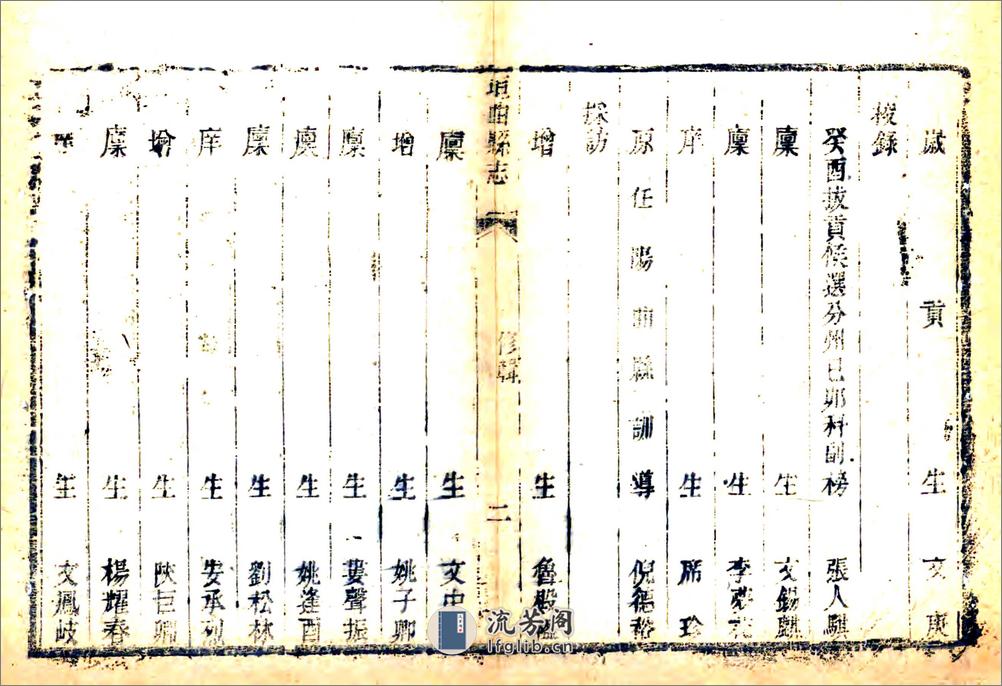 歲貢生文庚
校錄
癸酉拔貢候選分州已卯科副榜張人騏
廩生文錫
廩生李
庠生席珍
原任陽曲縣訓導倪德裕
採訪
增生魯殿
垣曲縣志
修輯
二
廩生文史
增生姚子卿
廩生婁聲振
廩生姚逢酉
廩生劉松林
庠生安承烈
增生陝巨卿
廩生楊耀春
生文鳳岐
流芳阁
lfglib.cn